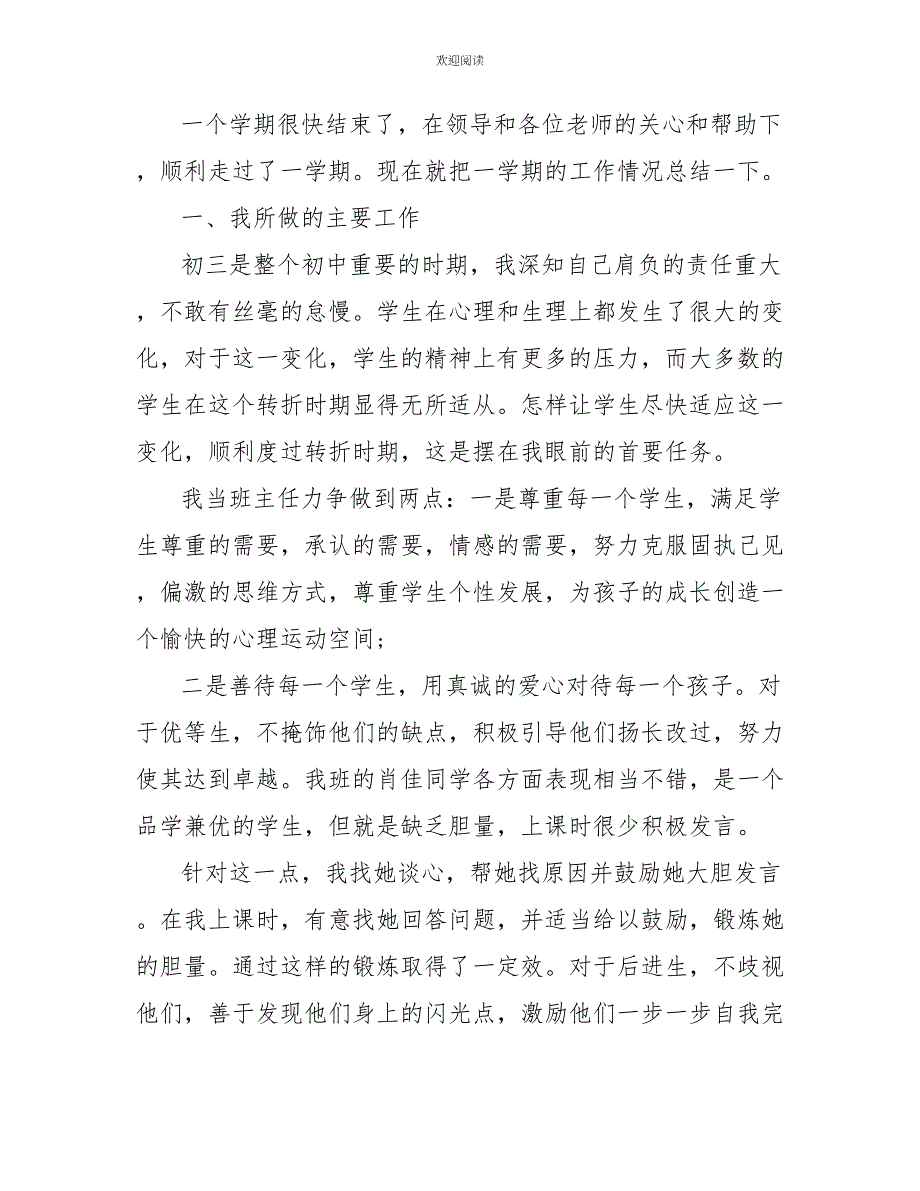 欢迎阅读
一个学期很快结束了，在领导和各位老师的关心和帮助下
，顺利走过了一学期。现在就把一学期的工作情况总结一下。
一、我所做的主要工作
初三是整个初中重要的时期，我深知自己肩负的责任重大
，不敢有丝毫的怠慢。学生在心理和生理上都发生了很大的变
化，对于这一变化，学生的精神上有更多的压力，而大多数的
学生在这个转折时期显得无所适从。怎样让学生尽快适应这一
变化，顺利度过转折时期，这是摆在我眼前的首要任务。
我当班主任力争做到两点：一是尊重每一个学生，满足学
生尊重的需要，承认的需要，情感的需要，努力克服固执己见
，偏激的思维方式，尊重学生个性发展，为孩子的成长创造一
个愉快的心理运动空间;
二是善待每一个学生，用真诚的爱心对待每一个孩子。对
于优等生，不掩饰他们的缺点，积极引导他们扬长改过，努力
使其达到卓越。我班的肖佳同学各方面表现相当不错，是一个
品学兼优的学生，但就是缺乏胆量，上课时很少积极发言。
针对这一点，我找她谈心，帮她找原因并鼓励她大胆发言
。在我上课时，有意找她回答问题，并适当给以鼓励，锻炼她
的胆量。通过这样的锻炼取得了一定效。对于后进生，不歧视
他们，善于发现他们身上的闪光点，激励他们一步一步自我完